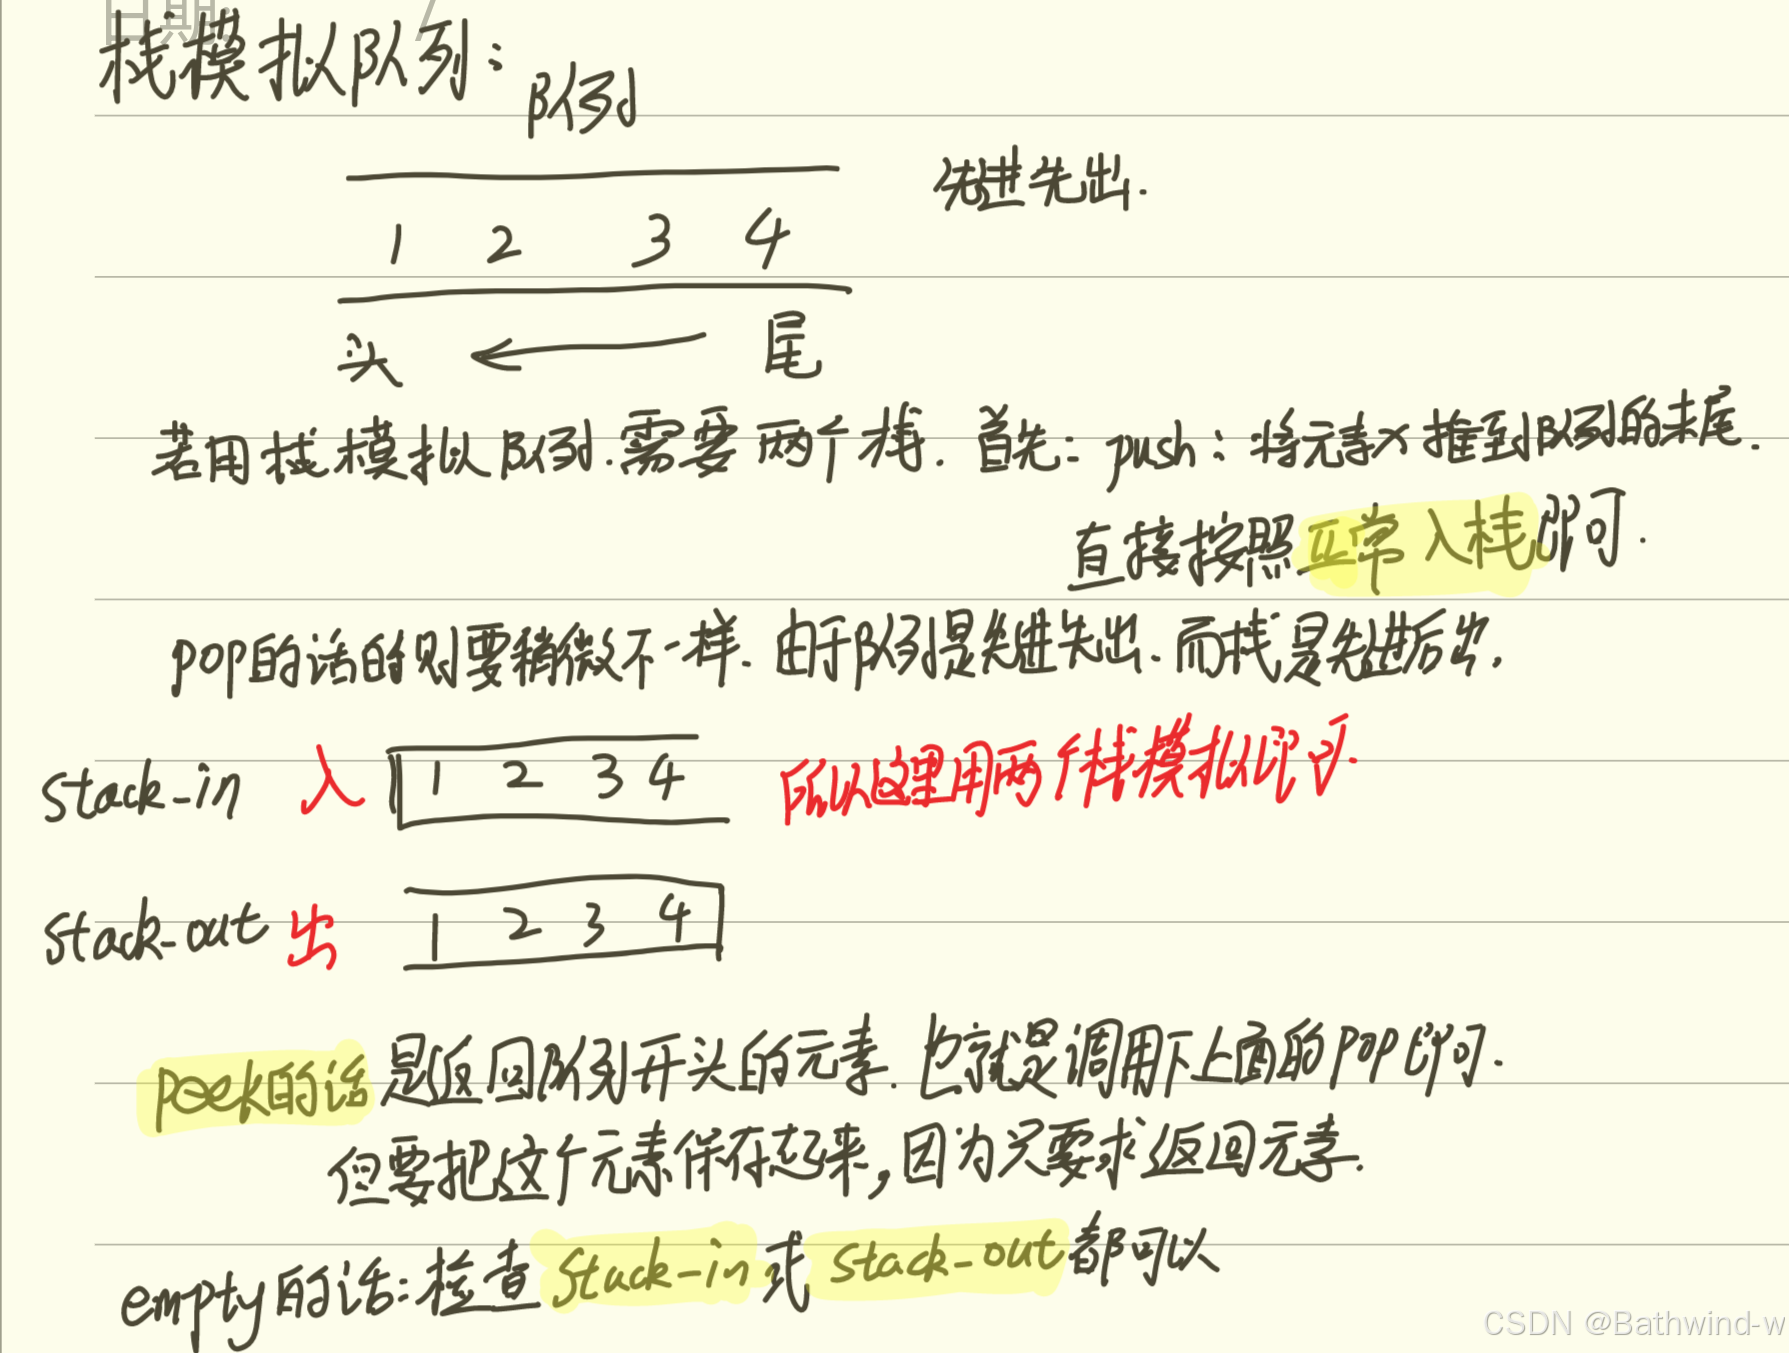 日期: /
栈模拟队列:
队列
先进先出.
1 2 3 4
头 尾
若用栈模拟队列.需要两个栈. 首先: push: 将元素x推到队列的末尾.
直接按照正常入栈即可.
pop的话的则要稍微不一样. 由于队列是先进先出. 而栈是先进后出.
stack-in 入 1 2 3 4 所以这里用两个栈模拟即可.
stack-out 出 1 2 3 4
peek的话是返回队列开头的元素. 也就是调用下上面的pop即可.
但要把这个元素保存起来,因为只要求返回元素.
empty的话:检查stack-in或stack-out都可以
CSDN @Bathwind-w